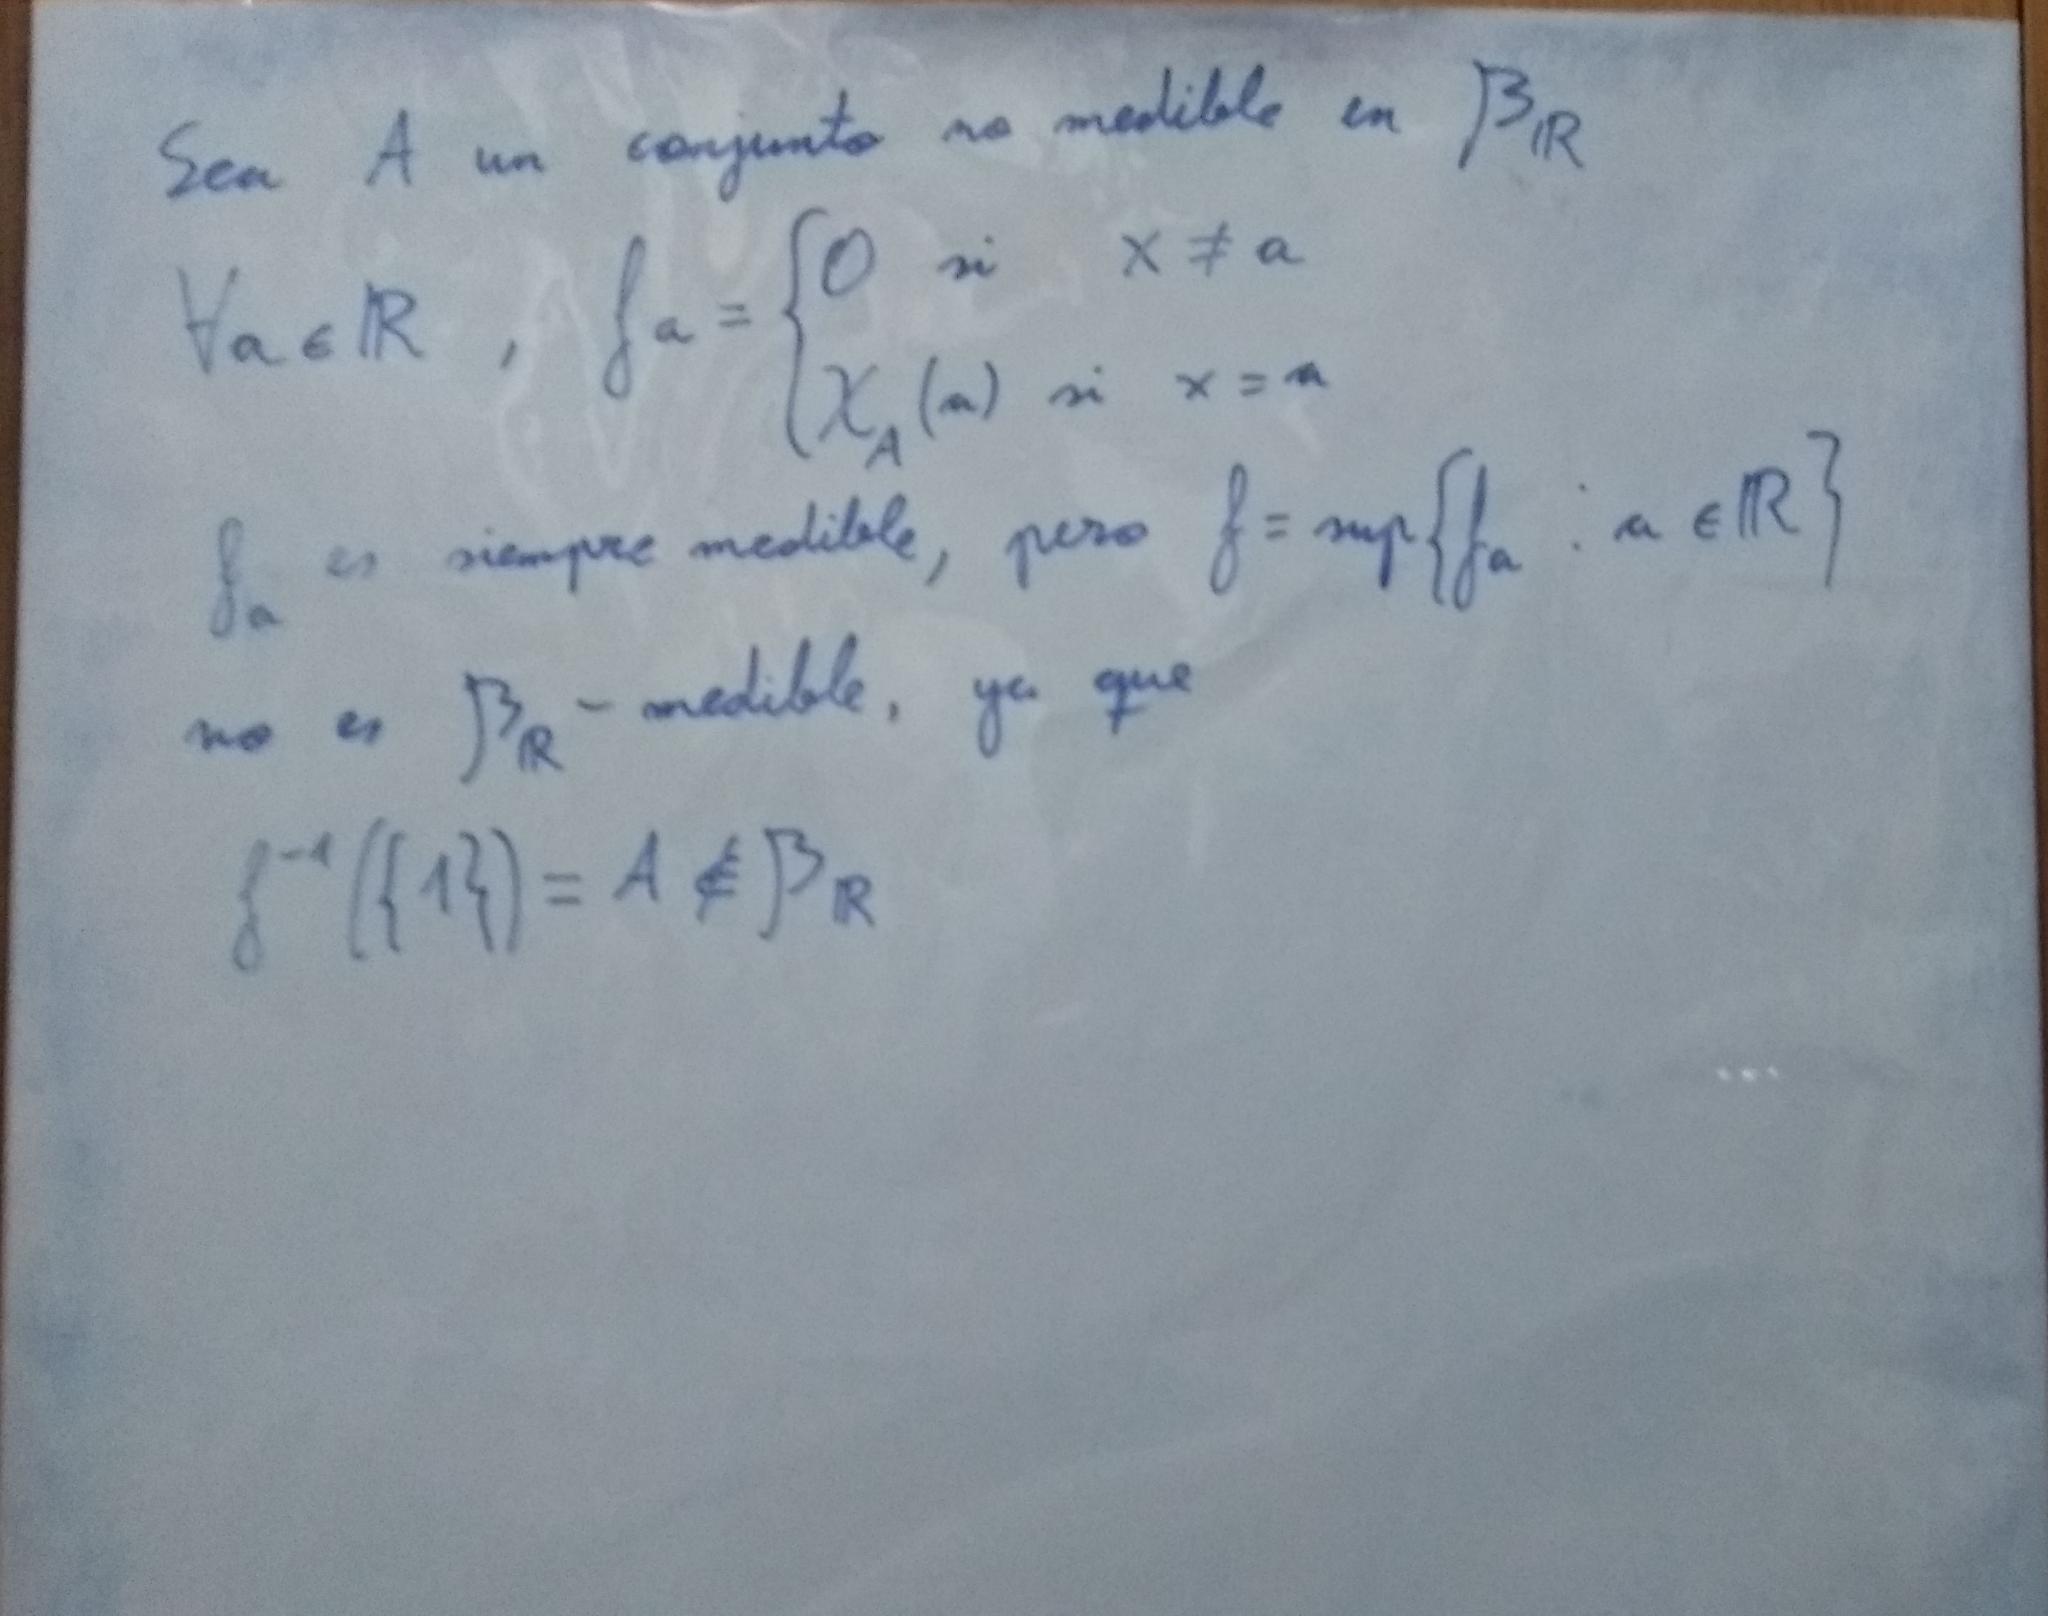 Sea A un conjunto no medible en β_ℝ
∀a∈ℝ, f_a = { 0 si x ≠ a
χ_A(a) si x = a
f_a es siempre medible, pero f = sup{f_a : a ∈ ℝ}
no es β_ℝ-medible, ya que
f⁻¹({1}) = A ∉ β_ℝ